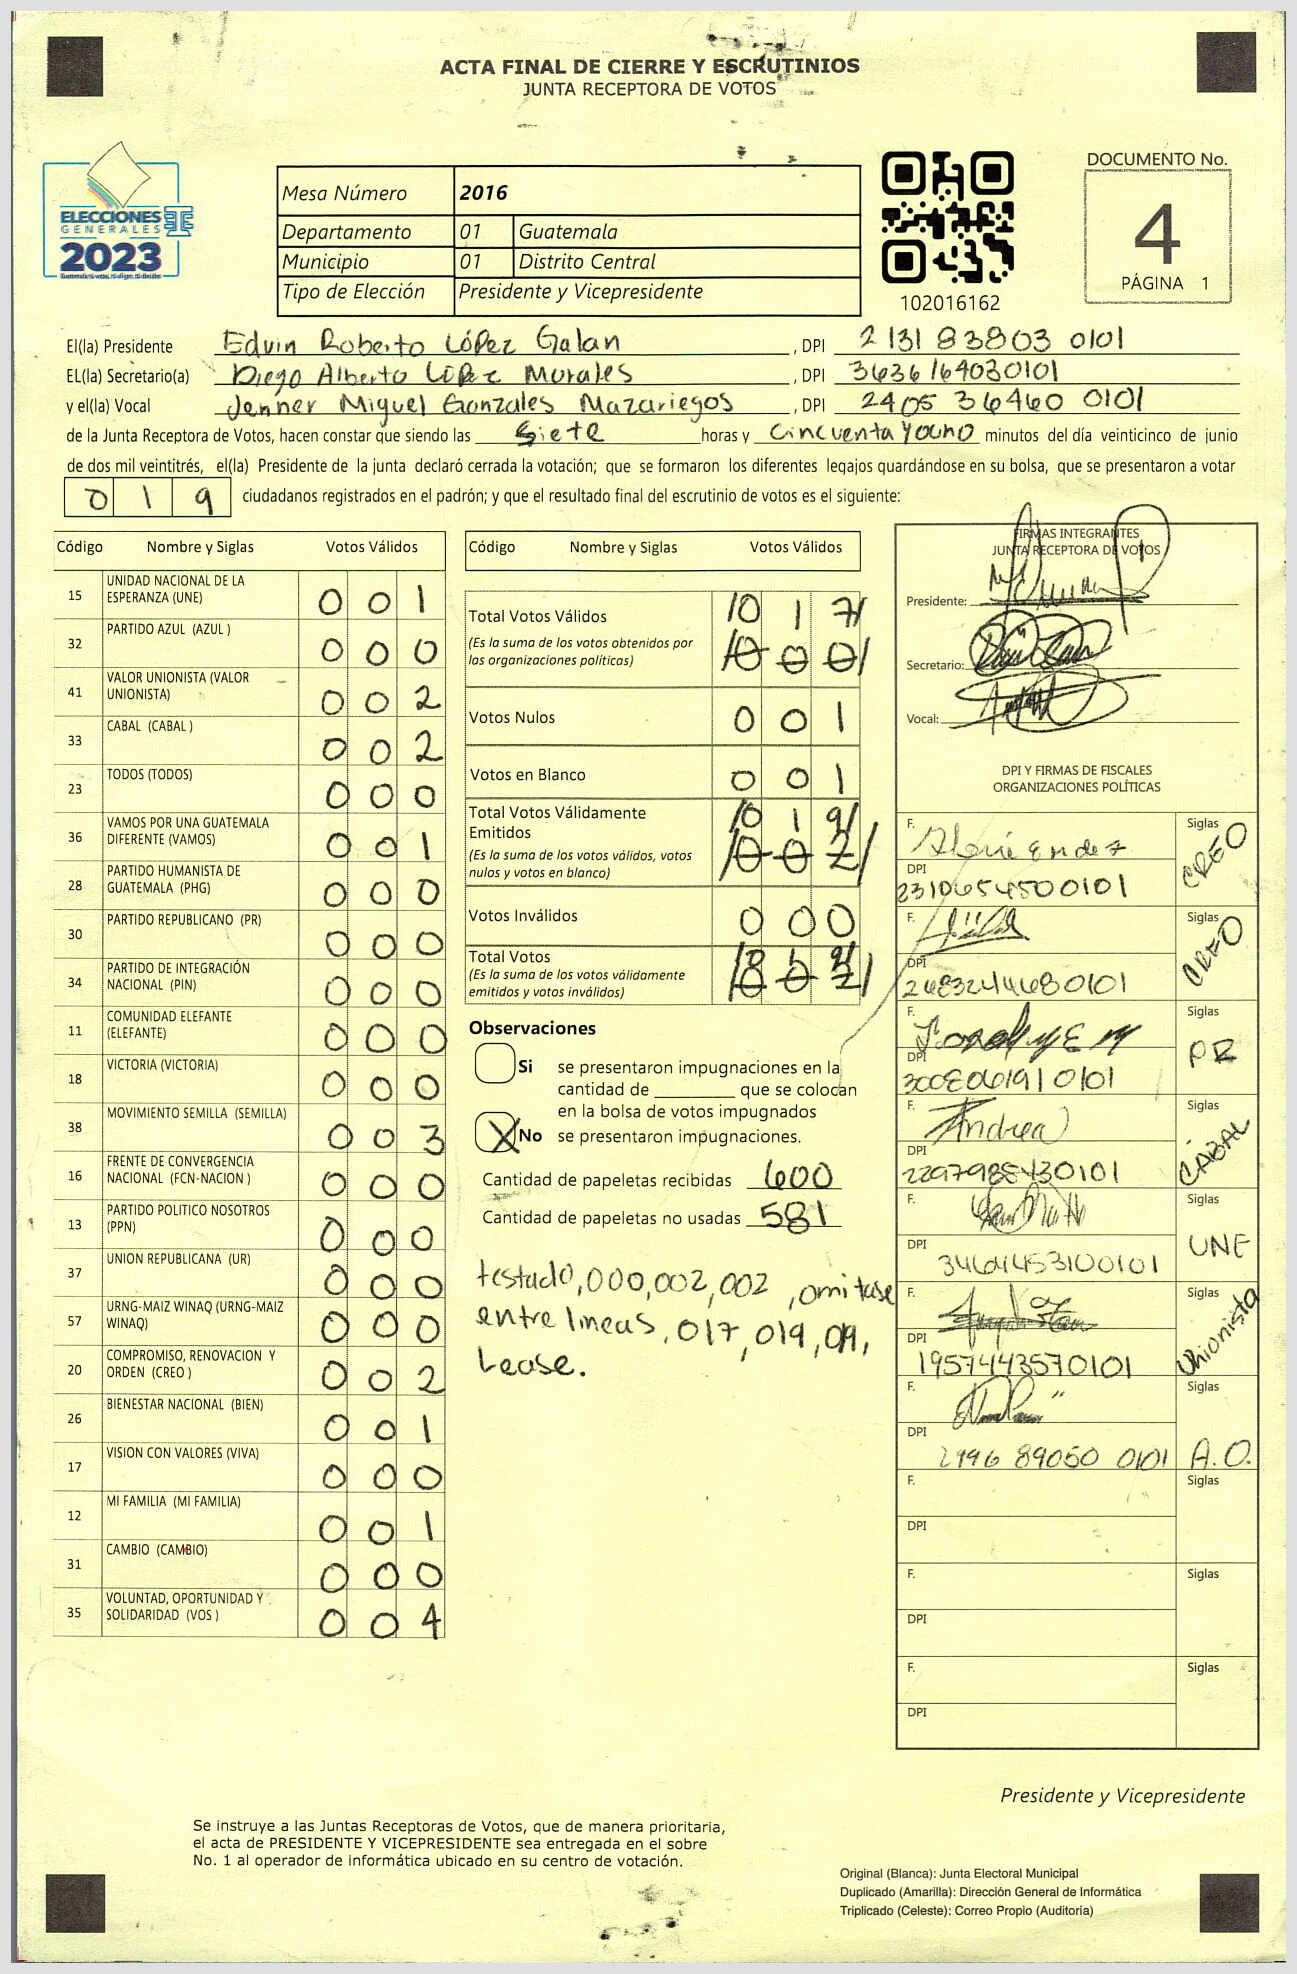 ACTA FINAL DE CIERRE Y ESCRUTINIOS
JUNTA RECEPTORA DE VOTOS
ELECCIONES
GENERALES
2023
Mesa Número 2016
Departamento 01 Guatemala
Municipio 01 Distrito Central
Tipo de Elección Presidente y Vicepresidente
102016162
DOCUMENTO No.
4
PÁGINA 1
El(la) Presidente Edvin Roberto López Galan , DPI 2131 83803 0101
EL(la) Secretario(a) Diego Alberto López Morales , DPI 3636164030101
y el(la) Vocal Jenner Miguel Gonzales Mazariegos , DPI 2405 36460 0101
de la Junta Receptora de Votos, hacen constar que siendo las siete horas y cincuenta y ocho minutos del día veinticinco de junio
de dos mil veintitrés, el(la) Presidente de la junta declaró cerrada la votación; que se formaron los diferentes legajos guardándose en su bolsa, que se presentaron a votar
019 ciudadanos registrados en el padrón; y que el resultado final del escrutinio de votos es el siguiente:
Código Nombre y Siglas Votos Válidos
15 UNIDAD NACIONAL DE LA ESPERANZA (UNE) 001
32 PARTIDO AZUL (AZUL ) 000
41 VALOR UNIONISTA (VALOR UNIONISTA) 002
33 CABAL (CABAL ) 002
23 TODOS (TODOS) 000
36 VAMOS POR UNA GUATEMALA DIFERENTE (VAMOS) 001
28 PARTIDO HUMANISTA DE GUATEMALA (PHG) 000
30 PARTIDO REPUBLICANO (PR) 000
34 PARTIDO DE INTEGRACIÓN NACIONAL (PIN) 000
11 COMUNIDAD ELEFANTE (ELEFANTE) 000
18 VICTORIA (VICTORIA) 000
38 MOVIMIENTO SEMILLA (SEMILLA) 003
16 FRENTE DE CONVERGENCIA NACIONAL (FCN-NACION ) 000
13 PARTIDO POLITICO NOSOTROS (PPN) 000
37 UNION REPUBLICANA (UR) 000
57 URNG-MAIZ WINAQ (URNG-MAIZ WINAQ) 000
20 COMPROMISO, RENOVACION Y ORDEN (CREO ) 002
26 BIENESTAR NACIONAL (BIEN) 001
17 VISION CON VALORES (VIVA) 000
12 MI FAMILIA (MI FAMILIA) 001
31 CAMBIO (CAMBIO) 000
35 VOLUNTAD, OPORTUNIDAD Y SOLIDARIDAD (VOS ) 004
Código Nombre y Siglas Votos Válidos
Total Votos Válidos /017/
(Es la suma de los votos obtenidos por las organizaciones políticas) /000/
Votos Nulos 001
Votos en Blanco 001
Total Votos Válidamente Emitidos /019/
(Es la suma de los votos válidos, votos nulos y votos en blanco) /002/
Votos Inválidos 000
Total Votos /019/
(Es la suma de los votos válidamente emitidos y votos inválidos) /002/
Observaciones
Si se presentaron impugnaciones en la
cantidad de que se colocan
en la bolsa de votos impugnados
X No se presentaron impugnaciones.
Cantidad de papeletas recibidas 600
Cantidad de papeletas no usadas 581
testado,000,002,002 ,omitase
entre lineas, 017,019,019,
Lease.
FIRMAS INTEGRANTES
JUNTA RECEPTORA DE VOTOS
Presidente:
Secretario:
Vocal:
DPI Y FIRMAS DE FISCALES
ORGANIZACIONES POLÍTICAS
F. Siglas CREO
DPI 2310654500101
F. Siglas CREO
DPI 2483244680101
F. Siglas PR
DPI
F. Andrea Siglas CABAL
DPI 2297985430101
F. Siglas UNE
DPI 3461453100101
F. Siglas Unionista
DPI 1957443570101
F. Siglas A.O.
DPI 2996 89050 0101
F. Siglas
DPI
F. Siglas
DPI
F. Siglas
DPI
Presidente y Vicepresidente
Se instruye a las Juntas Receptoras de Votos, que de manera prioritaria,
el acta de PRESIDENTE Y VICEPRESIDENTE sea entregada en el sobre
No. 1 al operador de informática ubicado en su centro de votación.
Original (Blanca): Junta Electoral Municipal
Duplicado (Amarilla): Dirección General de Informática
Triplicado (Celeste): Correo Propio (Auditoría)